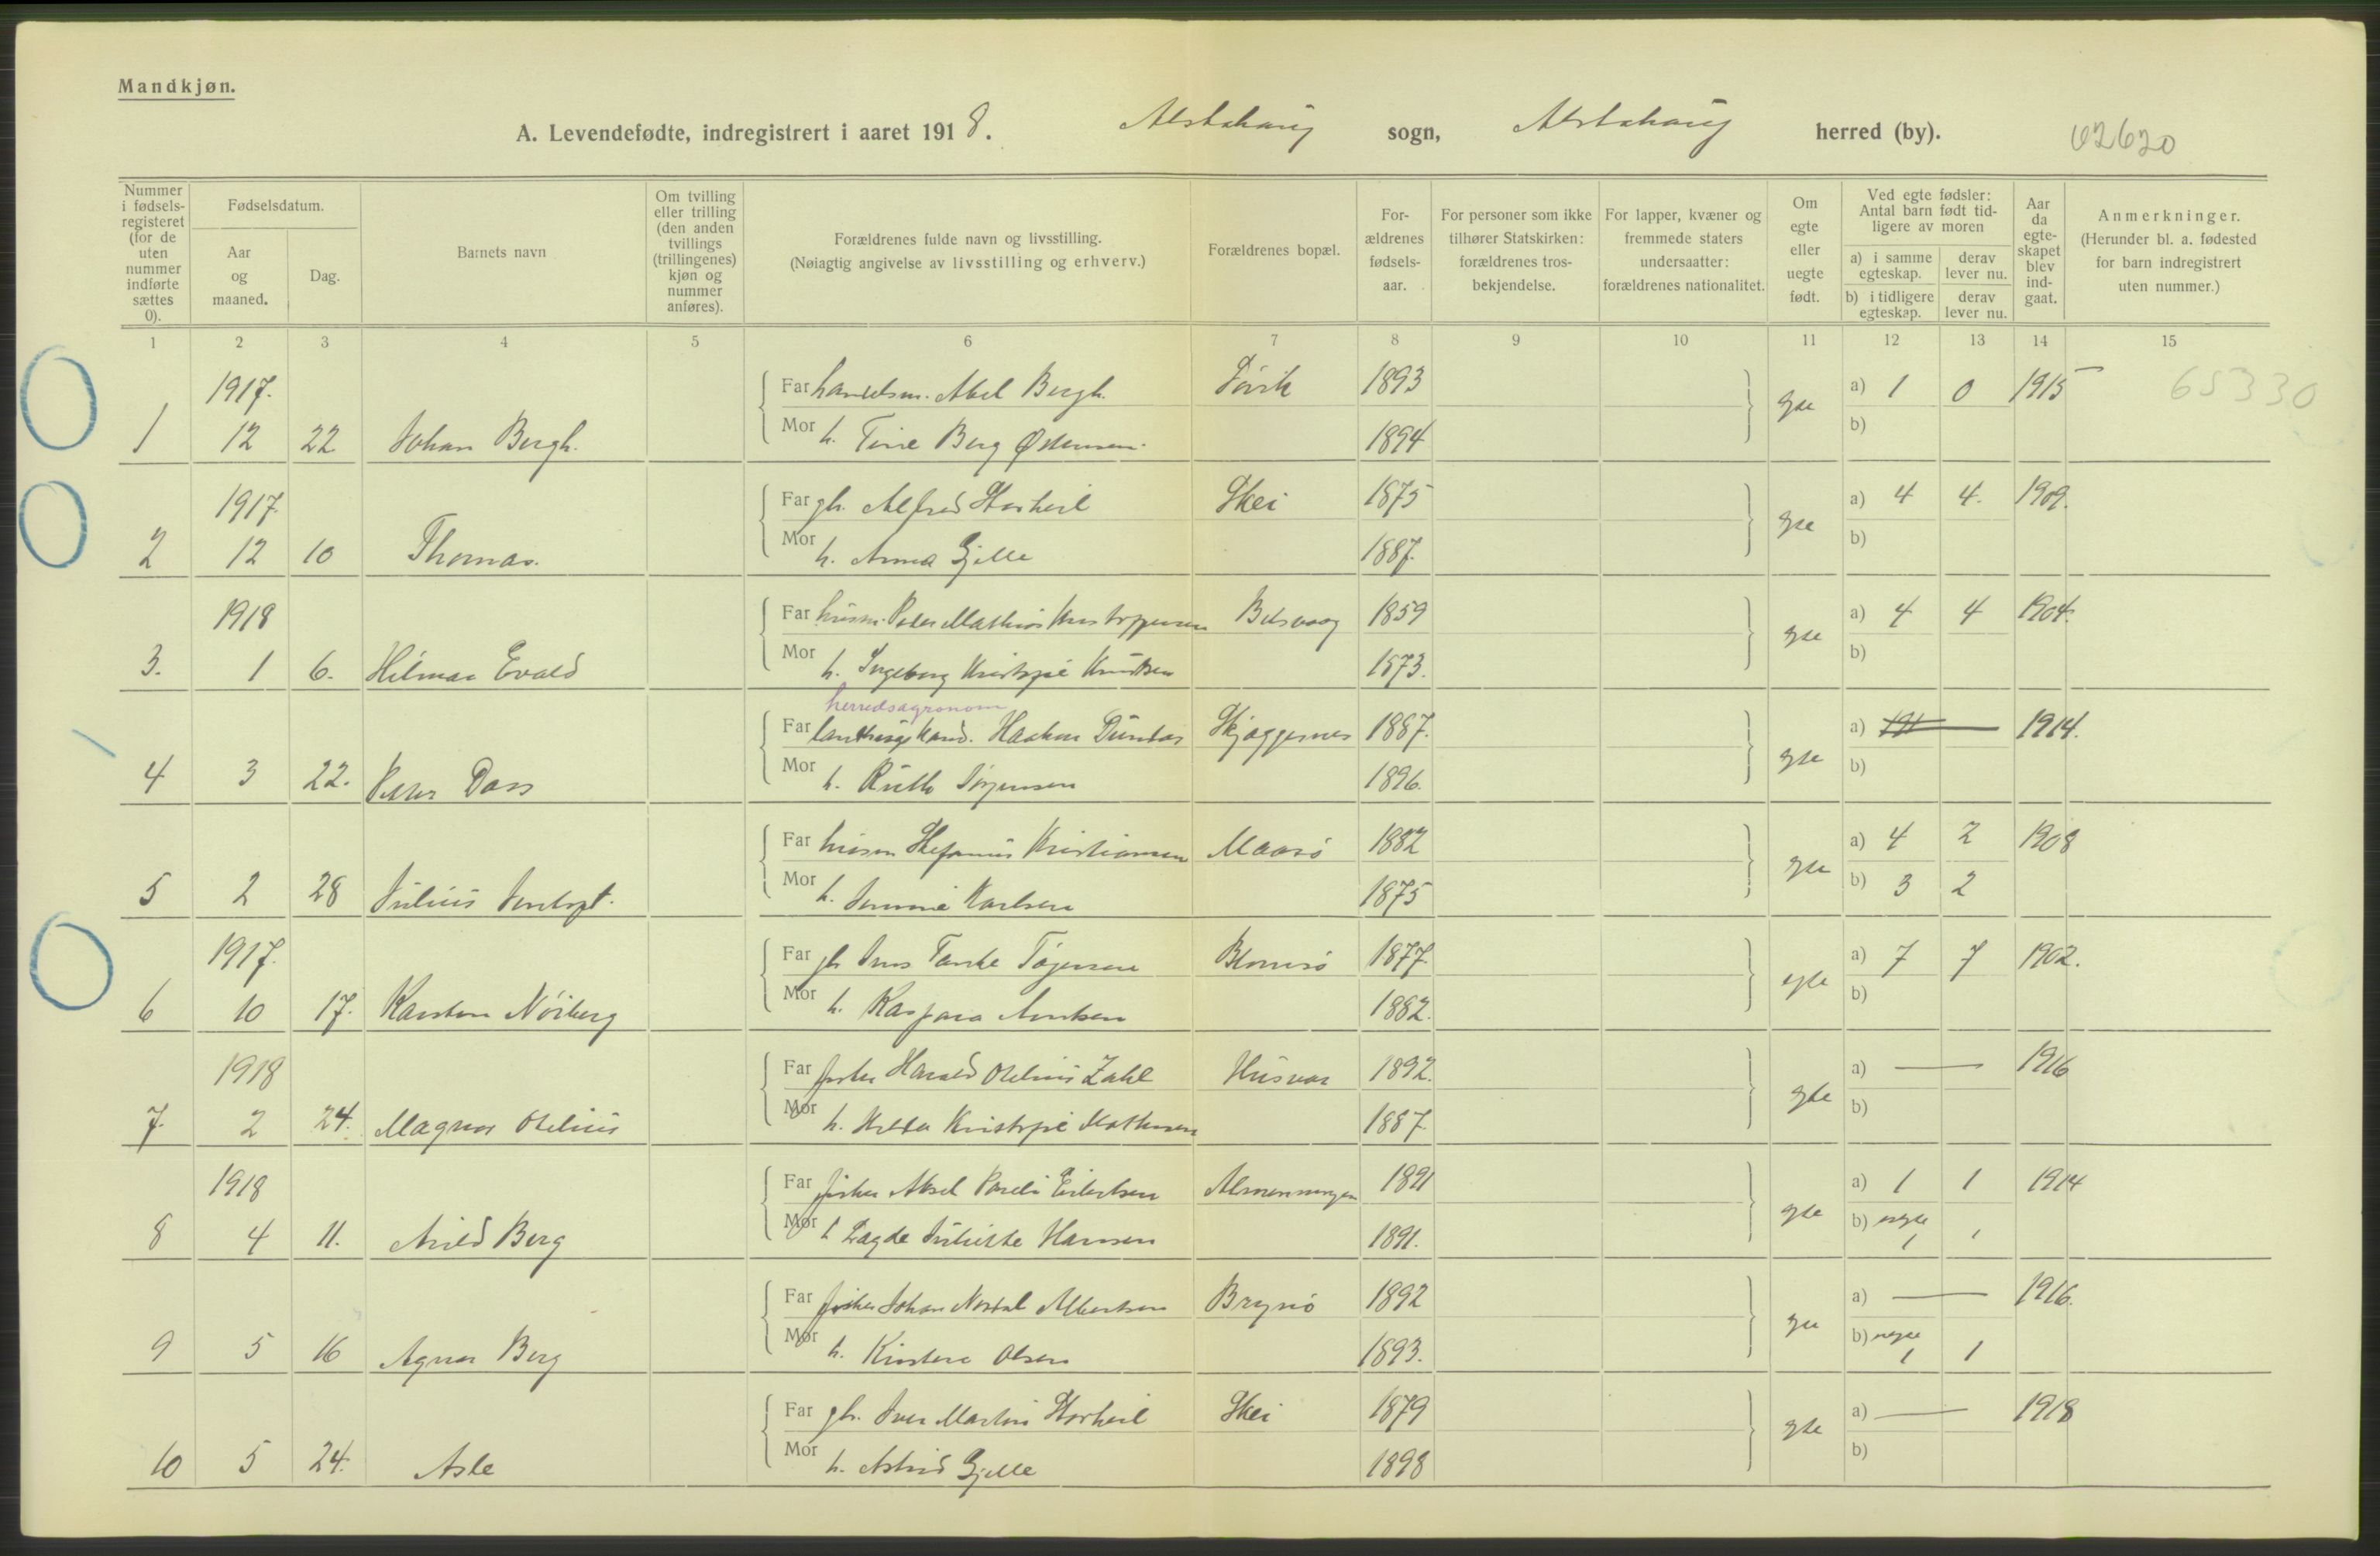 Mandkjøn.
A. Levendefødte, indregistrert i aaret 1918. Alstahaug sogn, Alstahaug herred (by). 02620
Nummer i fødsels-registeret (for de uten nummer indførte sættes 0).
Fødselsdatum.
Aar og maaned.
Dag.
Barnets navn
Om tvilling eller trilling (den anden tvillings (trillingenes) kjøn og nummer anføres).
Forældrenes fulde navn og livsstilling.
(Nøiagtig angivelse av livsstilling og erhverv.)
Forældrenes bopæl.
For-ældrenes fødsels-aar.
For personer som ikke tilhører Statskirken: forældrenes tros-bekjendelse.
For lapper, kvæner og fremmede staters undersaatter: forældrenes nationalitet.
Om egte eller uegte født.
Ved egte fødsler: Antal barn født tid-ligere av moren
a) i samme egteskap.
derav lever nu.
b) i tidligere egteskap.
derav lever nu.
Aar da egte-skapet blev ind-gaat.
Anmerkninger.
(Herunder bl. a. fødested for barn indregistrert uten nummer.)
1 2 3 4 5 6 7 8 9 10 11 12 13 14 15
1917. Far handelsm. Abel Bergh. Søvik 1893 gte a) 1 0 1915 65330
1 12 22 Johan Bergh. Mor h. Tine Berg Østensen. 1894 b)
1917. Far gb. Alfred Storheil Skei 1875 gte a) 4 4. 1909.
2 12 10 Thomas. Mor h. Anna Gjelle 1887. b)
1918 Far husm. Peder Mathias Kristoffersen Belsvaag 1859 gte a) 4 4 1904.
3. 1 6. Hilmar Evald Mor h. Ingeborg Kristofie Knutsen 1873. b)
herredsagronom
Far Haakon Dundas Skjeggesnes 1887. gte a) 1914.
4 3 22. Petter Dass Mor h. Ruth Jørgensen 1896. b)
Far husm Stefanus Kristiansen Maasø 1882 gte a) 4 2 1908
5 2 28 Julius Mor h. Karlsen 1875 b) 3 2
1917. Far gb Jens Blomsø 1877. egte a) 7 7 1902.
6 10 17. Karsten Nøiberg Mor h. Kaspara 1882. b)
1918 Far fisker Harald Otelius Zahl Husvær 1892. gte a) 1916
7. 2 24. Magnor Otelius Mor h. Kristofie Mathisen 1887. b)
1918 Far fisker Aksel Pareli Eilertsen Almenningen 1891 gte a) 1 1 1914
8 4 11. Arild Berg Mor h Dagde Juliette Hansen 1891. b) uegte 1 1
Far fisker Johan Nordal Albertsen Brynø 1892 gte a) 1916.
9 5 16 Agnar Berg Mor h. Kirstine Olsen 1893. b) uegte 1 1
Far gb. Iver Martin Storheil Skei 1879 gte a) 1918
10 5 24. Asle Mor h. Astrid Gjelle 1898 b)